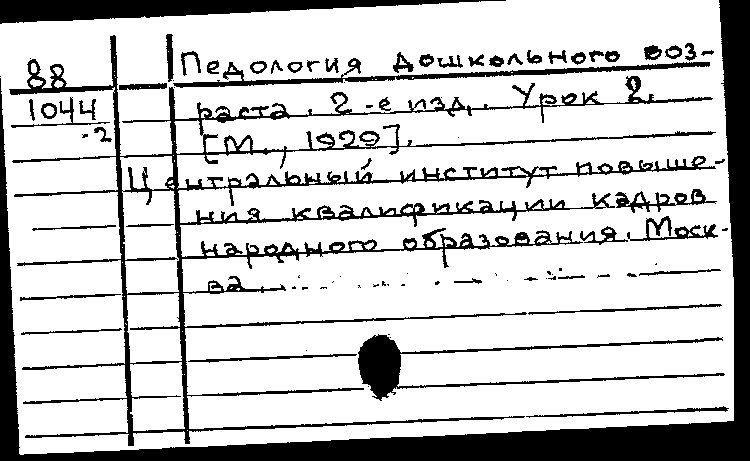 88 Педология дошкольного воз-
1044 раста. 2-е изд. Урок 2.
-2 [М., 1929].
Центральный институт повыше-
ния квалификации кадров
народного образования. Моск-
ва